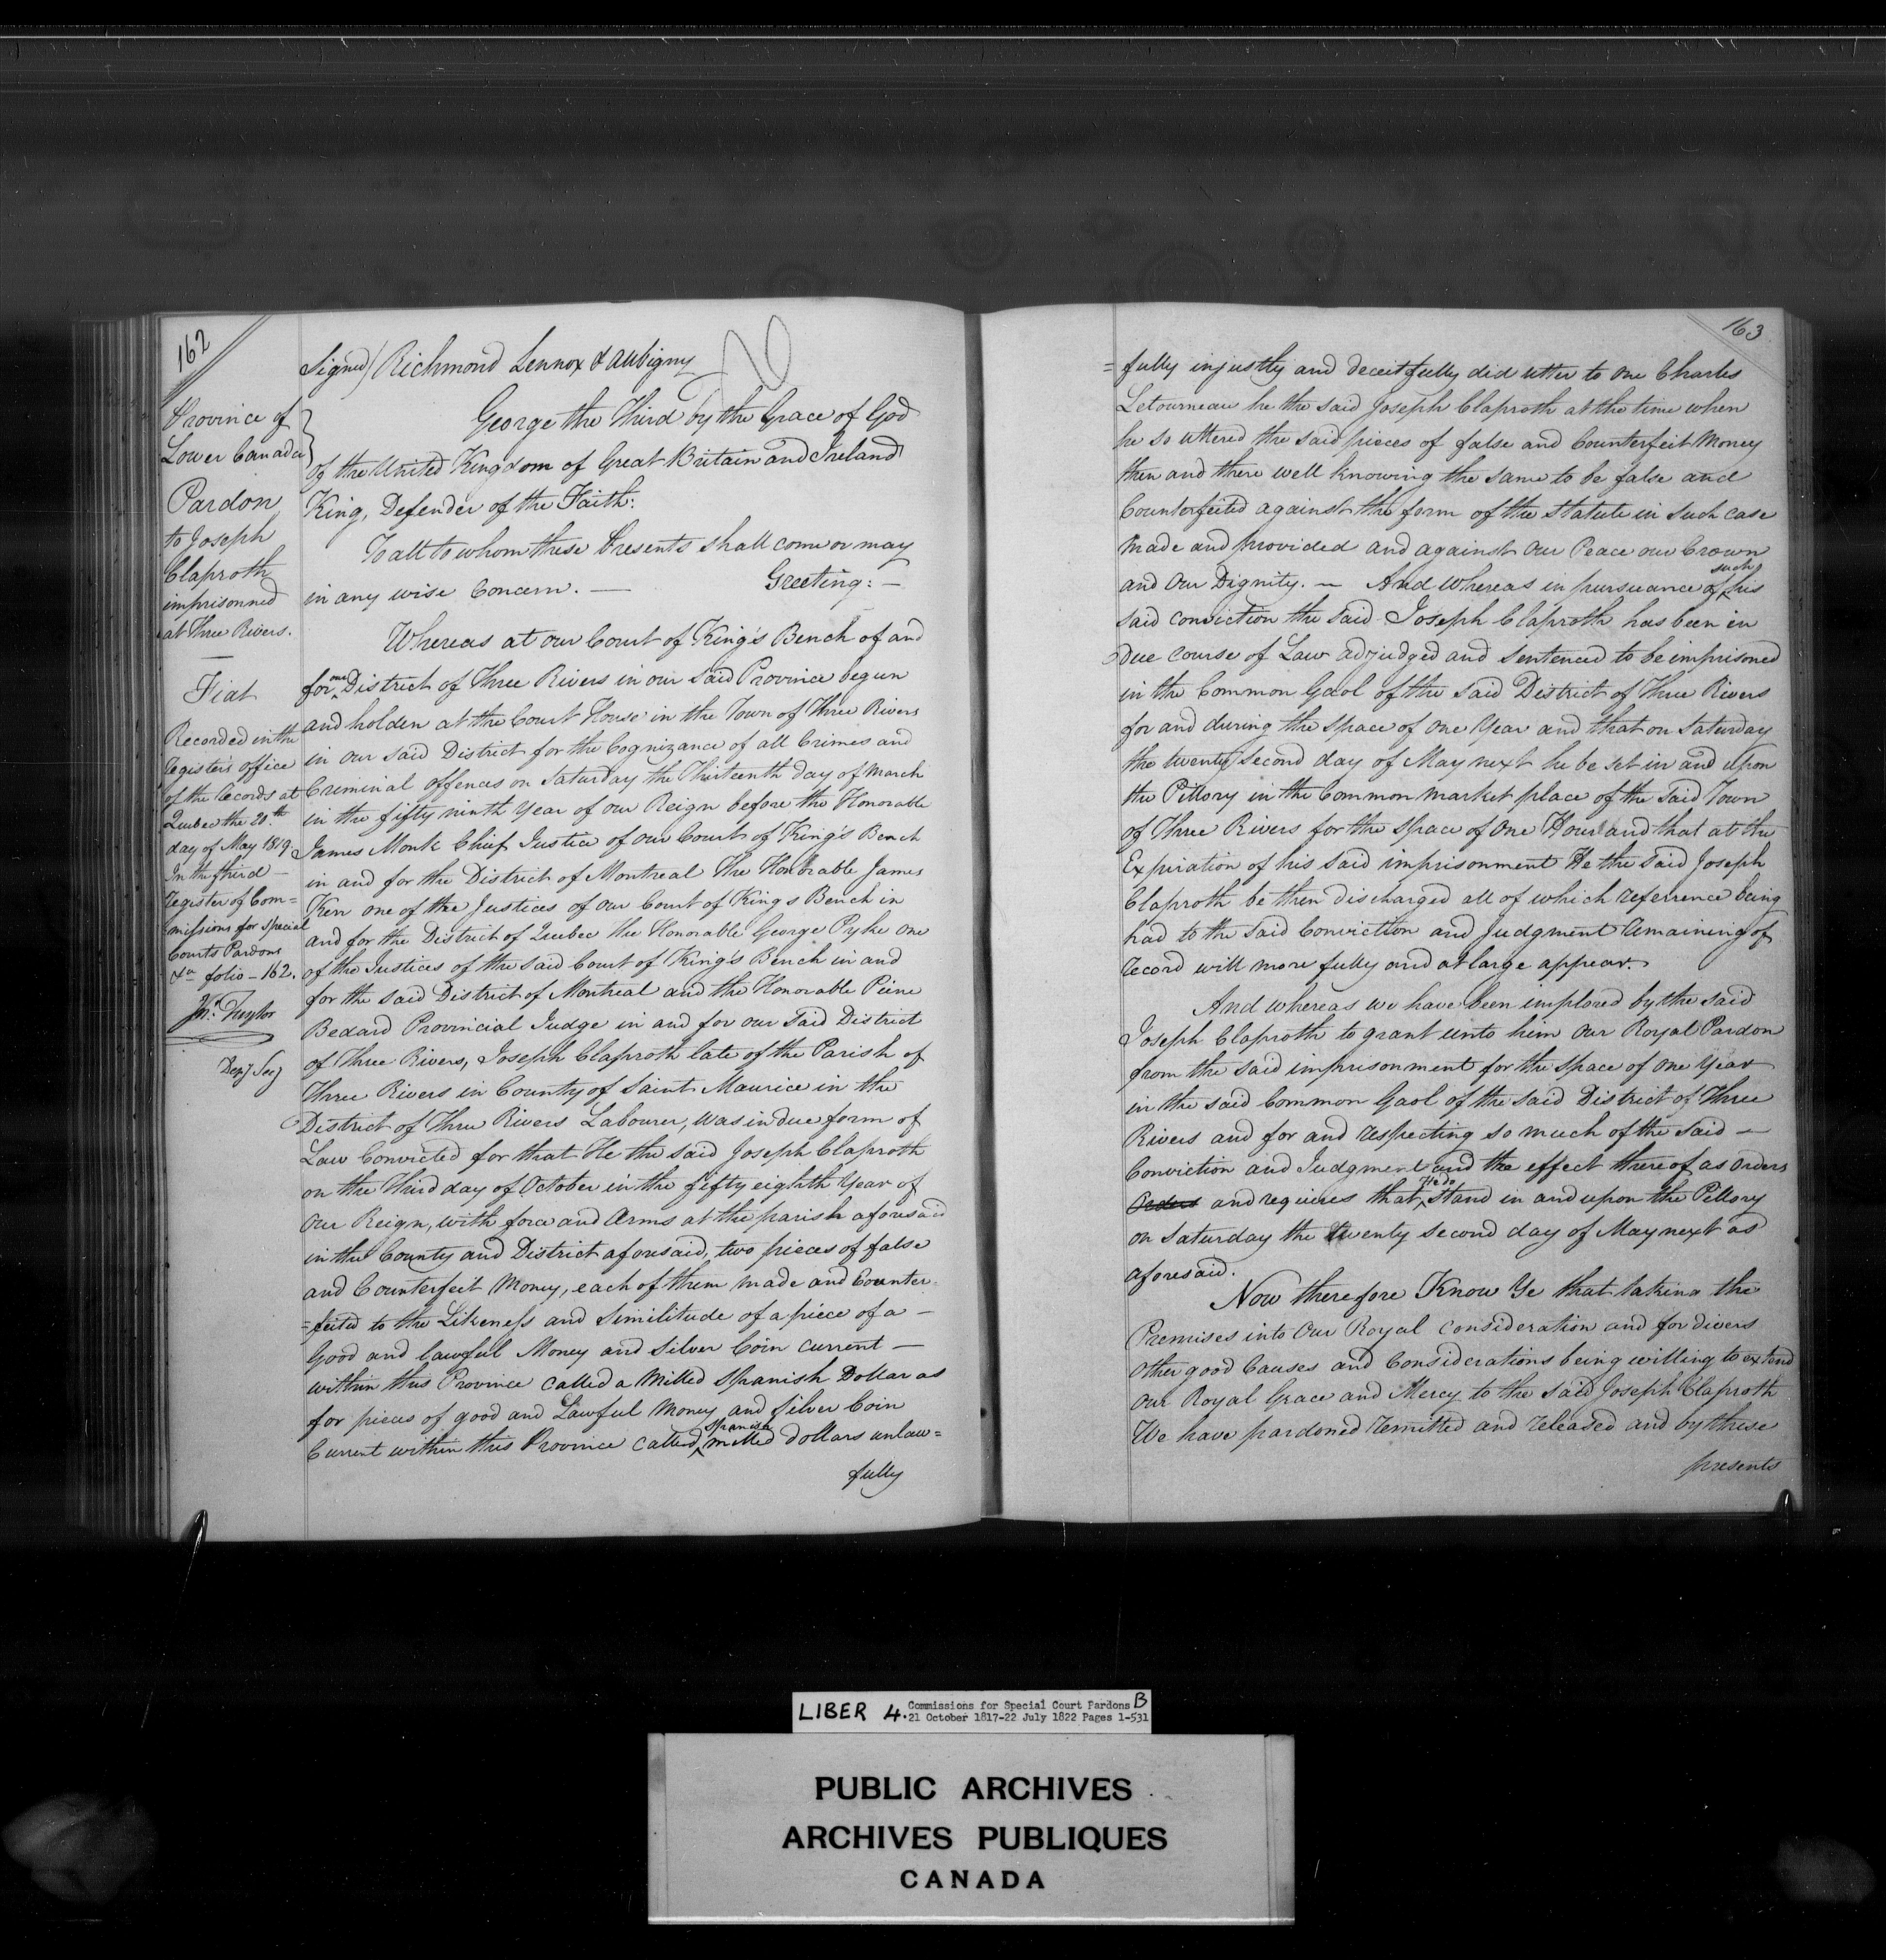 162
Signed/ Richmond Lennox & Aubigny
Province of
Lower Canada
Pardon
to Joseph
Claproth
imprisonned
at Three Rivers.
Fiat
Recorded in the
Register's office
of the Records at
Quebec the 20th
day of May 1819
In the third
Register of Com=
missions for Special
Courts Pardons
&a folio - 162.
Jn: Taylor
Depy Secy
George the Third by the Grace of God
of the United Kingdom of Great Britain and Ireland
King, Defender of the Faith:
To all to whom these Presents shall come or may
in any wise Concern. — Greeting: —
Whereas at our Court of King's Bench of and
for our District of Three Rivers in our said Province begun
and holden at the Court House in the Town of Three Rivers
in our said District for the Cognizance of all Crimes and
Criminal offences on Saturday the Thirteenth day of March
in the fifty ninth Year of our Reign before the Honorable
James Monk Chief Justice of our Court of King's Bench
in and for the District of Montreal The Honorable James
Kerr one of the Justices of our Court of Kings Bench in
and for the District of Quebec the Honorable George Pyke one
of the Justices of the said Court of King's Bench in and
for the said District of Montreal and the Honorable Pierre
Bedard Provincial Judge in and for our said District
of Three Rivers, Joseph Claproth late of the Parish of
Three Rivers in County of Saint Maurice in the
District of Three Rivers Labourer, was in due form of
Law Convicted for that He the said Joseph Claproth
on the Third day of October in the fifty eighth Year of
Our Reign, with force and Arms at the parish aforesaid
in the County and District aforesaid, two pieces of false
and Counterfeit Money, each of them made and Counter=
=feited to the Likeness and Similitude of a piece of a —
Good and lawful Money and Silver Coin current —
within this Province called a Milled Spanish Dollar as
for pieces of good and Lawful Money and Silver Coin
Current within this Province called Spanish milled dollars unlaw=
fully
163
=fully injustly and deceitfully did utter to one Charles
Letourneau he the said Joseph Claproth at the time when
he so uttered the said pieces of false and Counterfeit Money
then and there well knowing the same to be false and
Counterfeited against the form of the Statute in Such case
Made and provided and against Our Peace our Crown
and Our Dignity. — And Whereas in pursuance of such his
said conviction the said Joseph Claproth has been in
Due course of Law adjudged and Sentenced to be imprisoned
in the Common Gaol of the said District of Three Rivers
for and during the Space of One Year and that on Saturday
the twenty second day of May next he be set in and upon
the Pillory in the Common market place of the said Town
of Three Rivers for the Space of One Hour and that at the
Expiration of his said imprisonment He the said Joseph
Claproth be then discharged all of which referrence being
had to the said Conviction and Judgment Remaining of
record will more fully and at large appear.
And whereas we have been implored by the said
Joseph Claproth to grant unto him Our Royal Pardon
from the said imprisonment for the space of One Year
in the said Common Gaol of the said District of Three
Rivers and for and respecting so much of the said —
Conviction and Judgment and the effect thereof as Orders
Orders and requires that He do stand in and upon the Pillory
on Saturday the twenty second day of May next as
aforesaid.
Now therefore Know Ye that taking the
Premises into Our Royal consideration and for divers
other good Causes and Considerations being willing to extend
Our Royal Grace and Mercy to the said Joseph Claproth
We have pardoned remitted and released and by these
presents
LIBER 4. Commissions for Special Court Pardons B
21 October 1817-22 July 1822 Pages 1-531
PUBLIC ARCHIVES
ARCHIVES PUBLIQUES
CANADA